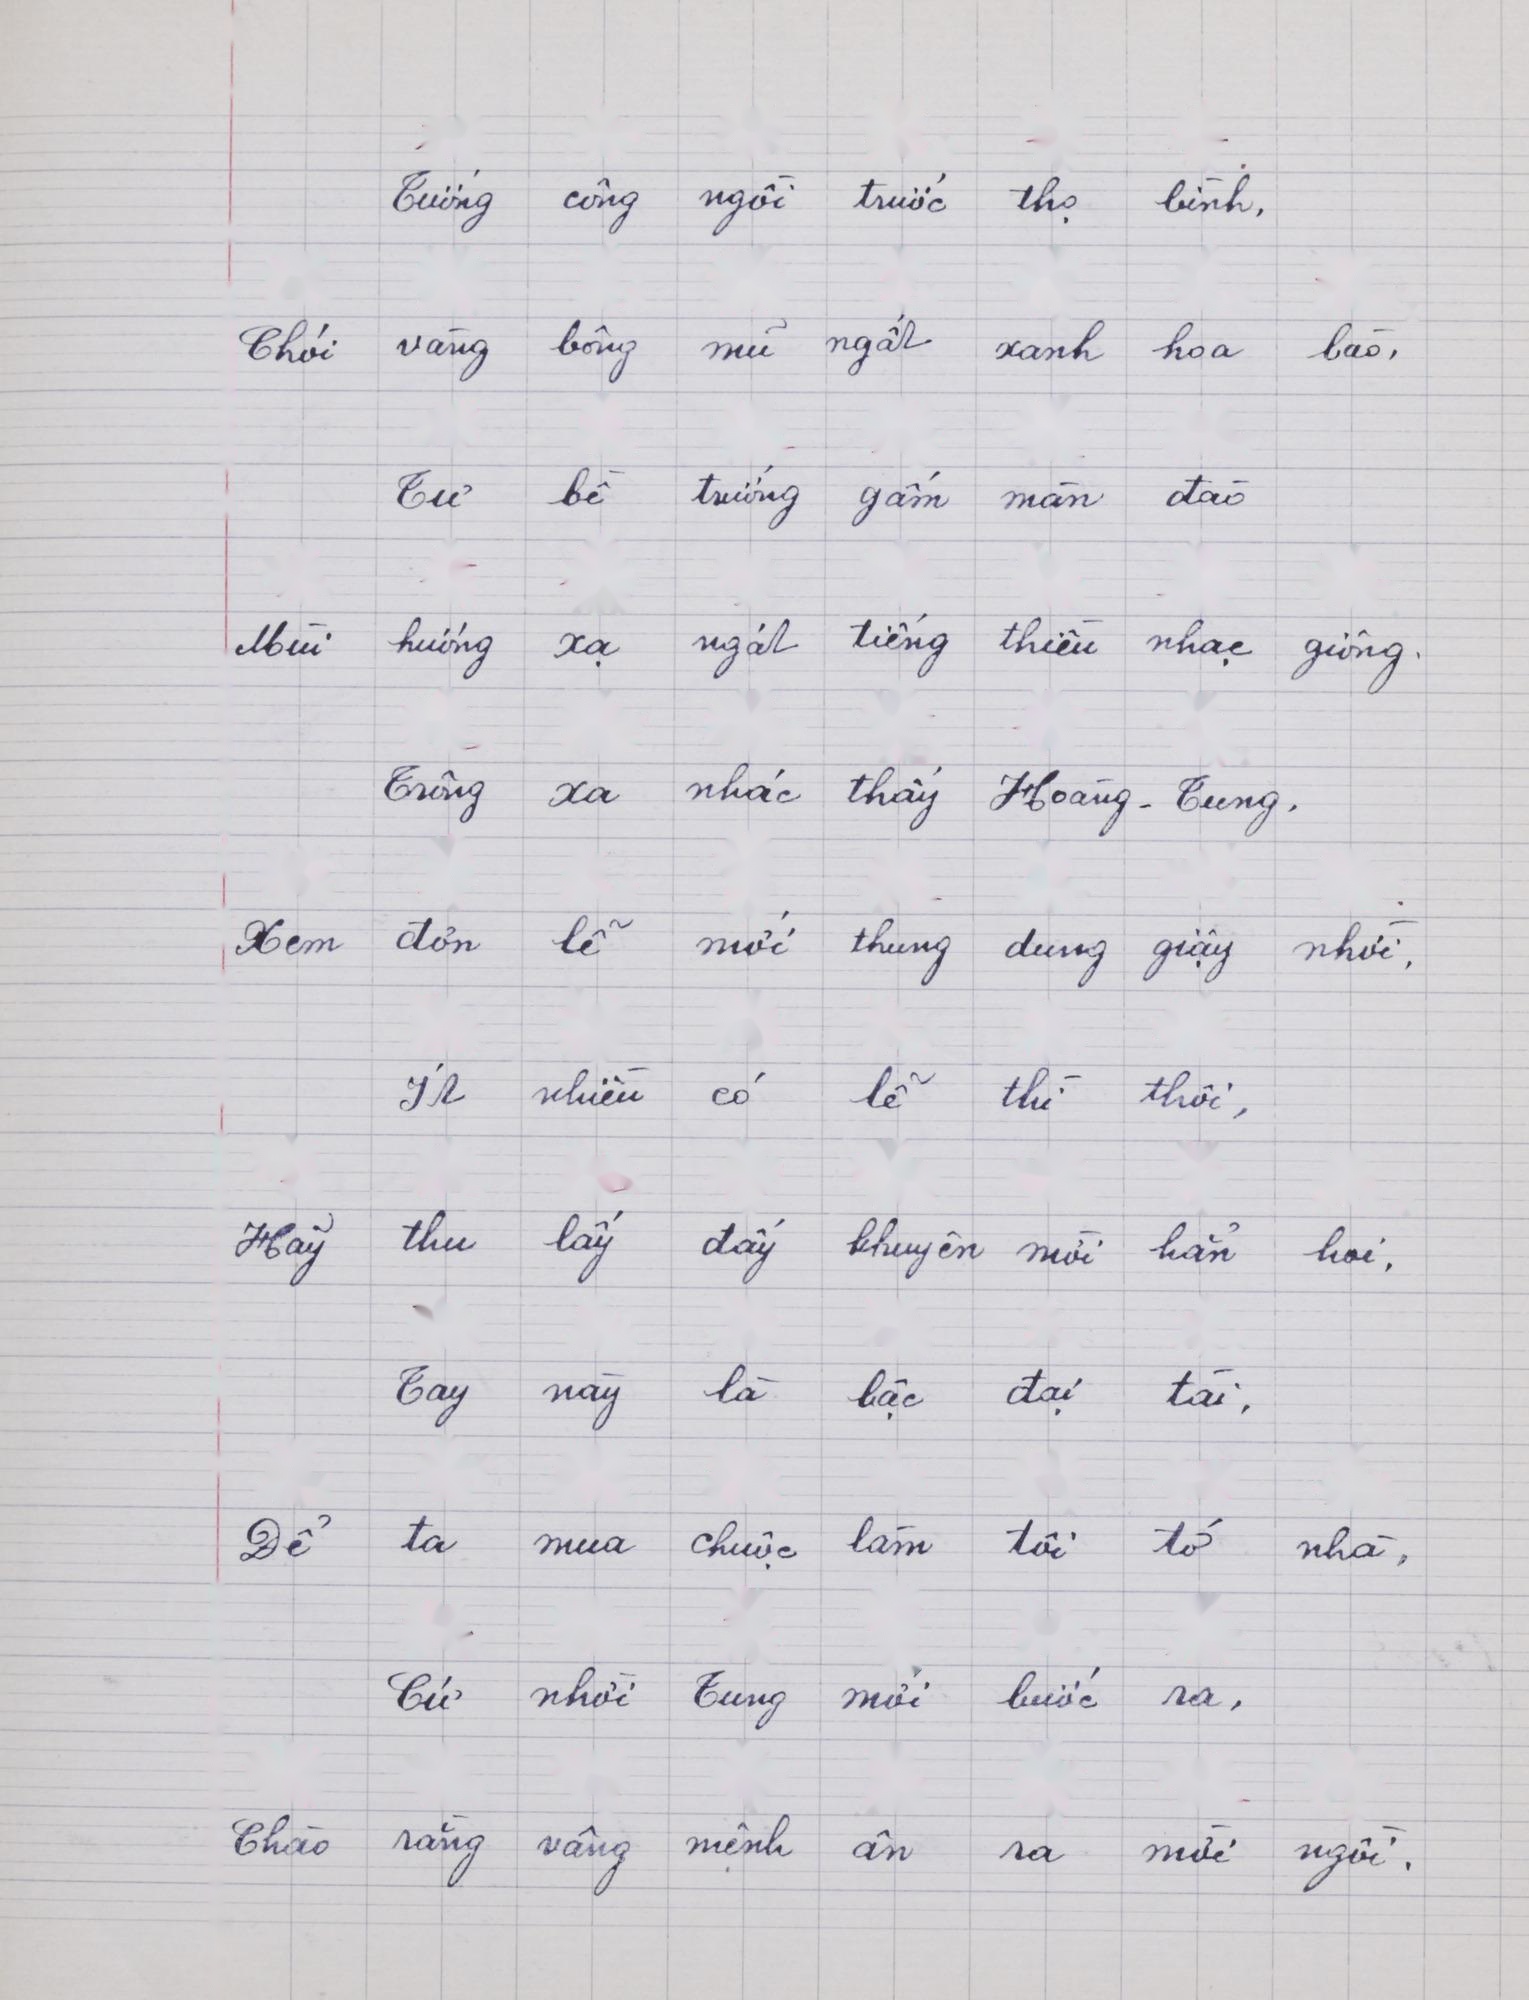 Tướng công ngồi trước thọ bình,
Chói vàng bông mũ ngắt xanh hoa bào,
Tư bề trướng gấm màn đào
Mùi hương xạ ngát tiếng thiều nhạc giông.
Trông xa nhác thấy Hoàng - Tung,
Xem đơn lễ mới thung dung giậy nhời,
Ít nhiều có lễ thì thôi,
Hãy thu lấy đấy khuyên mời hẳn hoi,
Tay này là bậc đại tài,
Để ta mua chuộc làm tôi tớ nhà,
Cứ nhời Tung mới bước ra,
Chào rằng vâng mệnh ân ra mời ngồi.